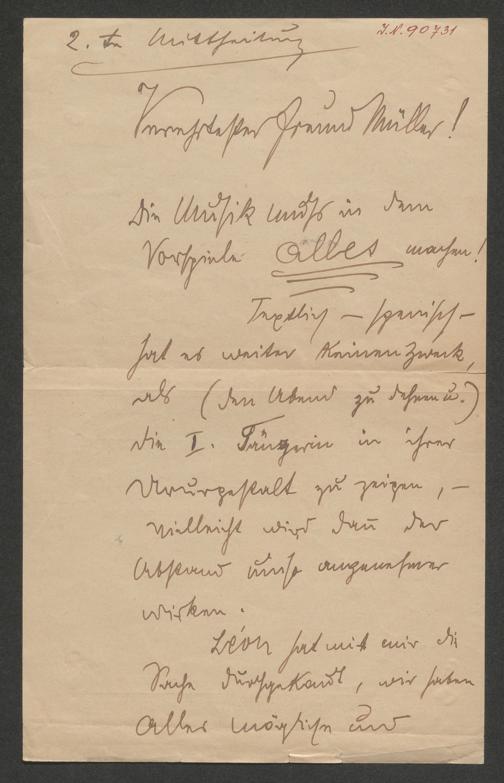 2. te Mittheilung
I.N. 90731
Verehrtester Freund Müller!
Die Musik muß in dem
Vorspiele alles machen!
Textlich – scenisch –
hat es weiter keinen Zweck,
als (den Abend zu dehnen u.)
die I. Tänzerin in ihrer
Ururgestalt zu zeigen, –
vielleicht wird dan̄ der
Abstand umso angenehmer
wirken.
Léon hat mit mir die
Sache durchgekaut, wir haben
alles mögliche und